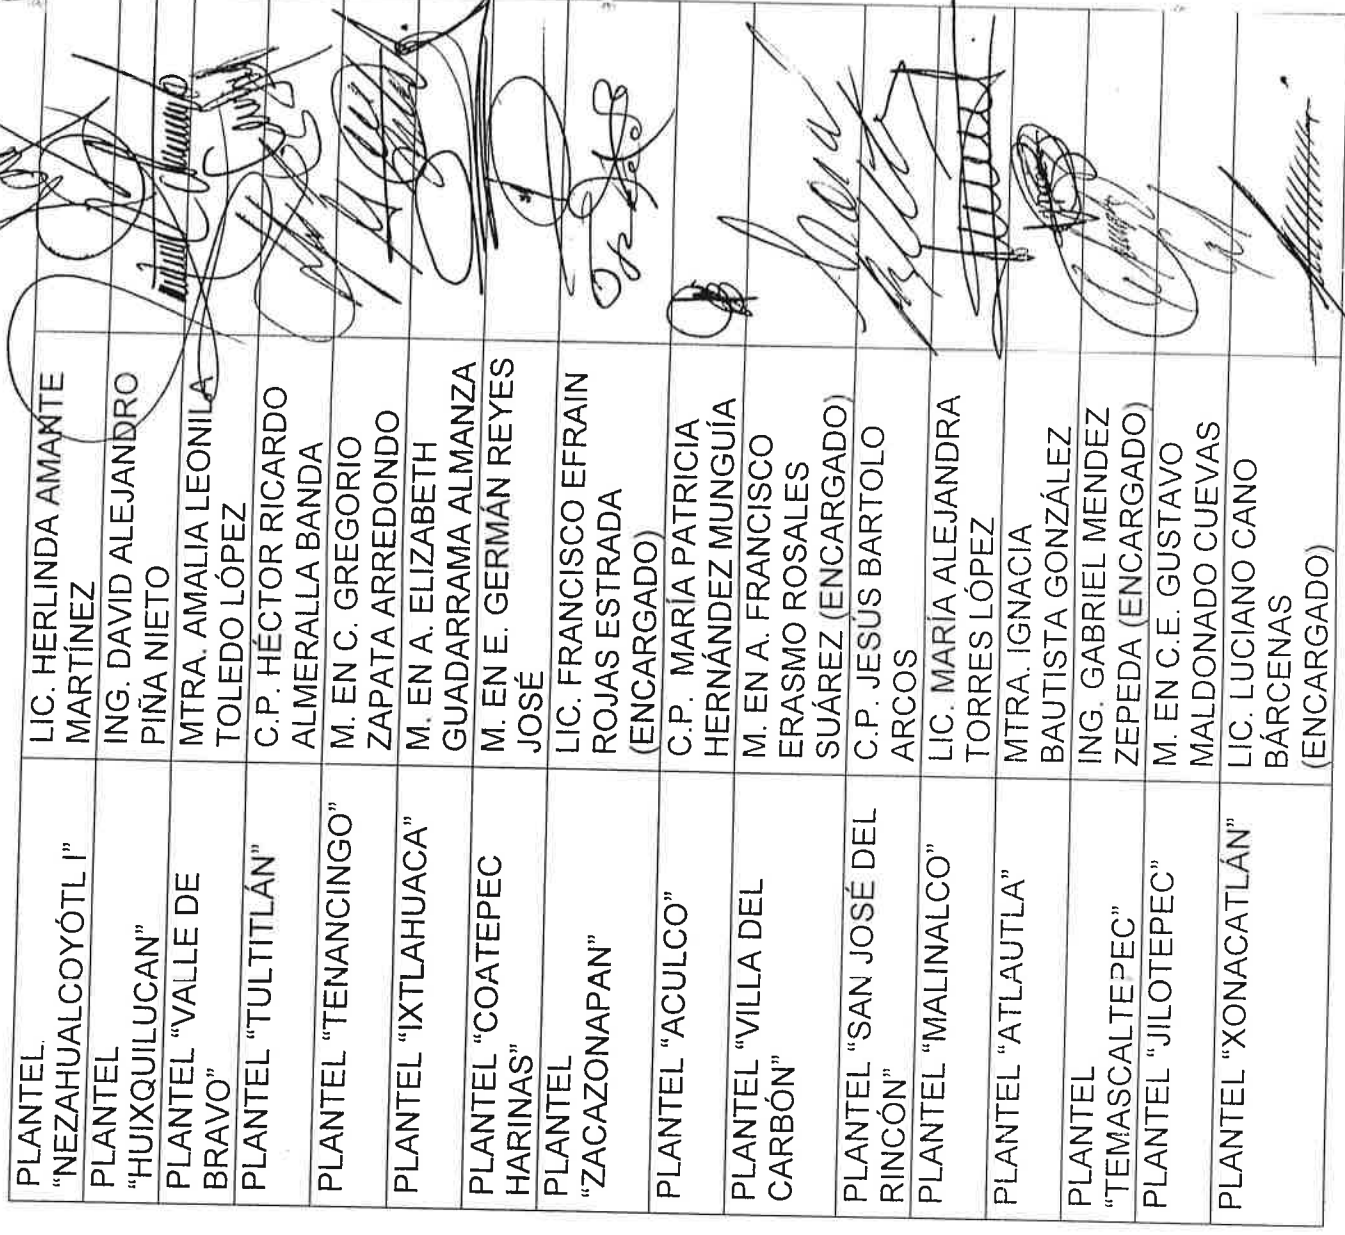 PLANTEL
"NEZAHUALCOYÓTL I"
LIC. HERLINDA AMANTE
MARTÍNEZ
PLANTEL
"HUIXQUILUCAN"
ING. DAVID ALEJANDRO
PIÑA NIETO
PLANTEL "VALLE DE
BRAVO"
MTRA. AMALIA LEONILA
TOLEDO LÓPEZ
PLANTEL "TULTITLÁN"
C.P. HÉCTOR RICARDO
ALMERALLA BANDA
PLANTEL "TENANCINGO"
M. EN C. GREGORIO
ZAPATA ARREDONDO
PLANTEL "IXTLAHUACA"
M. EN A. ELIZABETH
GUADARRAMA ALMANZA
PLANTEL "COATEPEC
HARINAS"
M. EN E. GERMÁN REYES
JOSÉ
PLANTEL
"ZACAZONAPAN"
LIC. FRANCISCO EFRAIN
ROJAS ESTRADA
(ENCARGADO)
PLANTEL "ACULCO"
C.P. MARÍA PATRICIA
HERNÁNDEZ MUNGUÍA
PLANTEL "VILLA DEL
CARBÓN"
M. EN A. FRANCISCO
ERASMO ROSALES
SUÁREZ (ENCARGADO)
PLANTEL "SAN JOSÉ DEL
RINCÓN"
C.P. JESÚS BARTOLO
ARCOS
PLANTEL "MALINALCO"
LIC. MARÍA ALEJANDRA
TORRES LÓPEZ
PLANTEL "ATLAUTLA"
MTRA. IGNACIA
BAUTISTA GONZÁLEZ
PLANTEL
"TEMASCALTEPEC"
ING. GABRIEL MENDEZ
ZEPEDA (ENCARGADO)
PLANTEL "JILOTEPEC"
M. EN C.E. GUSTAVO
MALDONADO CUEVAS
PLANTEL "XONACATLÁN"
LIC. LUCIANO CANO
BÁRCENAS
(ENCARGADO)